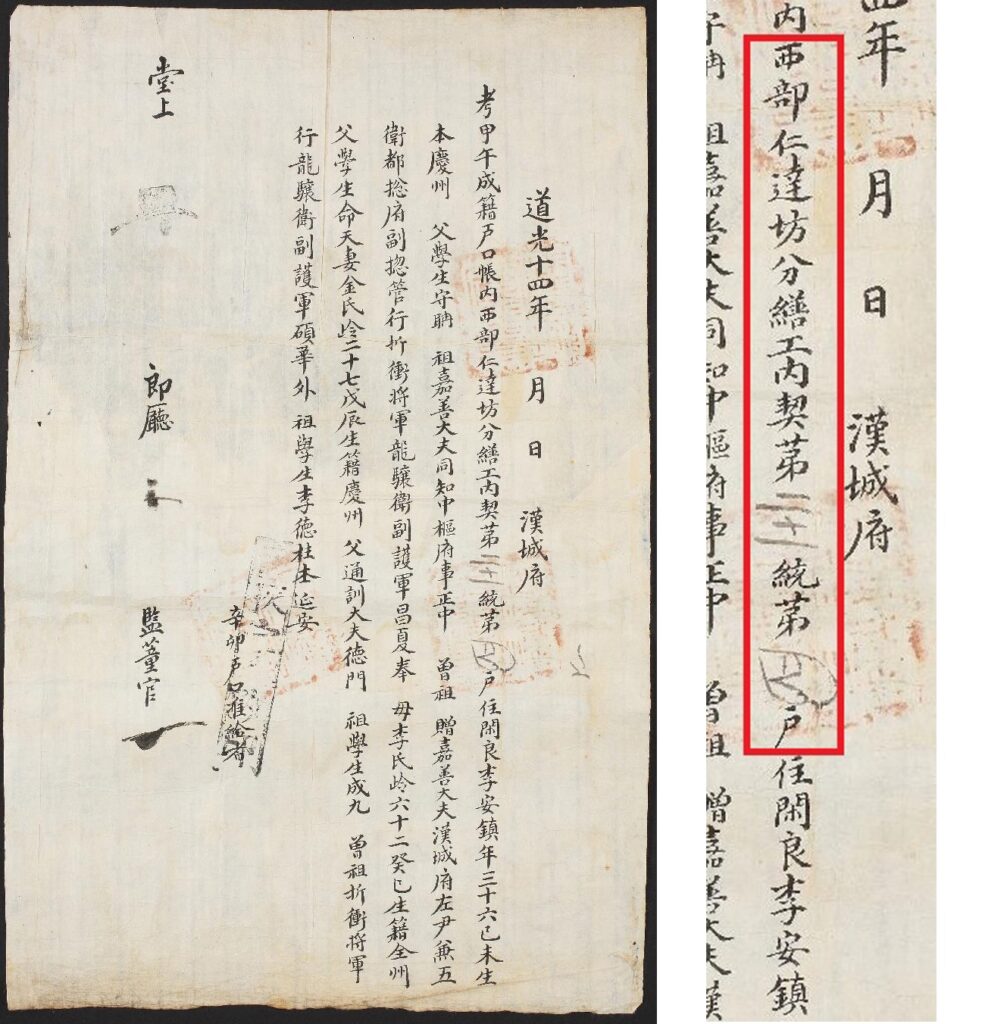 道光十四年 月 日 漢城府
考甲午成籍戶口帳内西部仁達坊分繕工内契第二十統第四戶住閑良李安鎮年三十六己未生
本慶州 父學生守聃 祖嘉善大夫同知中樞府事正中 曾祖 贈嘉善大夫漢城府左尹兼五
衛都摠府副摠管行折衝將軍龍驤衛副護軍昌夏奉 母李氏齡六十二癸巳生籍全州
父學生命天妻金氏齡二十七戊辰生籍慶州 父通訓大夫德門 祖學生成九 曾祖折衝將軍
行龍驤衛副護軍碩華外 祖學生李德柱本延安
辛卯戶口准給者
堂上 郎廳 監董官
年 月 日 漢城府
内西部仁達坊分繕工内契第二十統第四戶住閑良李安鎮
祖嘉善大夫同知中樞府事正中 曾祖 贈嘉善大夫漢